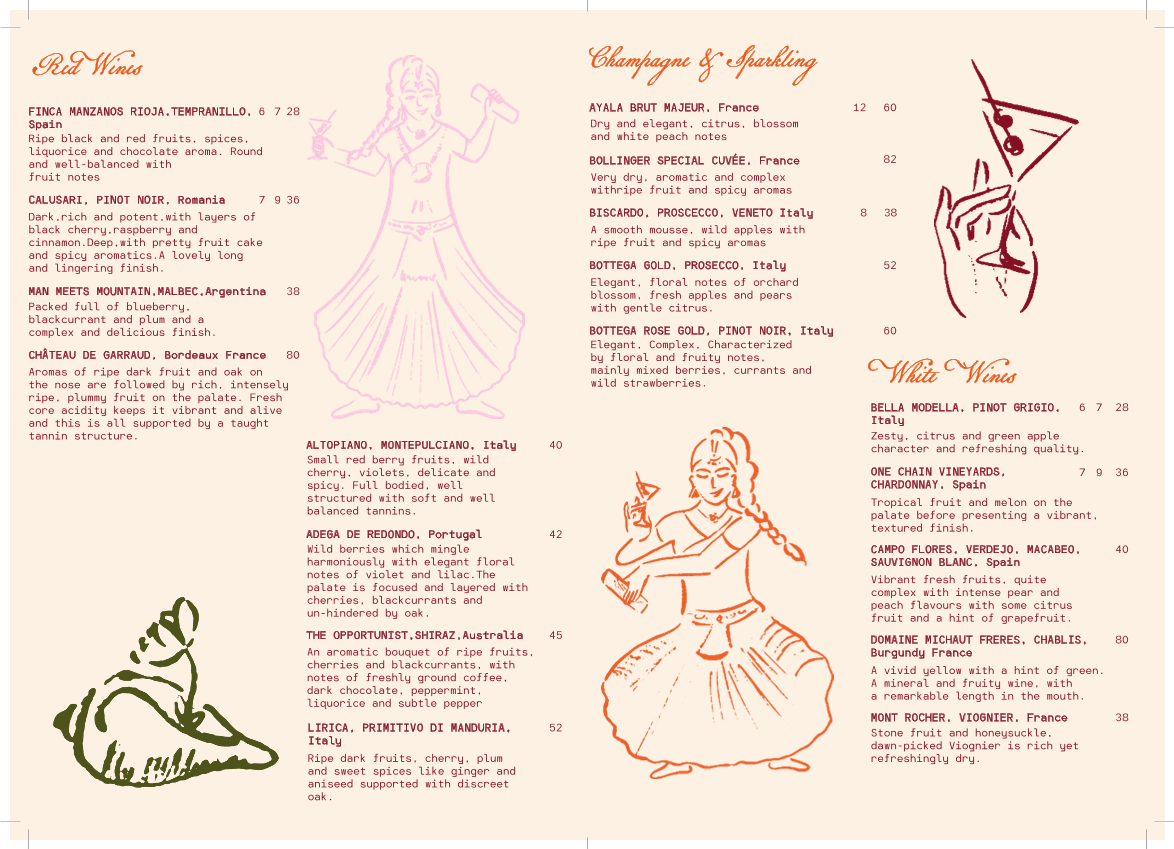 Red Wines
FINCA MANZANOS RIOJA,TEMPRANILLO, 6 7 28
Spain
Ripe black and red fruits, spices,
liquorice and chocolate aroma. Round
and well-balanced with
fruit notes
CALUSARI, PINOT NOIR, Romania 7 9 36
Dark,rich and potent,with layers of
black cherry,raspberry and
cinnamon.Deep,with pretty fruit cake
and spicy aromatics.A lovely long
and lingering finish.
MAN MEETS MOUNTAIN,MALBEC,Argentina 38
Packed full of blueberry,
blackcurrant and plum and a
complex and delicious finish.
CHÂTEAU DE GARRAUD, Bordeaux France 80
Aromas of ripe dark fruit and oak on
the nose are followed by rich, intensely
ripe, plummy fruit on the palate. Fresh
core acidity keeps it vibrant and alive
and this is all supported by a taught
tannin structure.
ALTOPIANO, MONTEPULCIANO, Italy 40
Small red berry fruits, wild
cherry, violets, delicate and
spicy. Full bodied, well
structured with soft and well
balanced tannins.
ADEGA DE REDONDO, Portugal 42
Wild berries which mingle
harmoniously with elegant floral
notes of violet and lilac.The
palate is focused and layered with
cherries, blackcurrants and
un-hindered by oak.
THE OPPORTUNIST,SHIRAZ,Australia 45
An aromatic bouquet of ripe fruits,
cherries and blackcurrants, with
notes of freshly ground coffee,
dark chocolate, peppermint,
liquorice and subtle pepper
LIRICA, PRIMITIVO DI MANDURIA, 52
Italy
Ripe dark fruits, cherry, plum
and sweet spices like ginger and
aniseed supported with discreet
oak.
Champagne & Sparkling
AYALA BRUT MAJEUR, France 12 60
Dry and elegant, citrus, blossom
and white peach notes
BOLLINGER SPECIAL CUVÉE, France 82
Very dry, aromatic and complex
withripe fruit and spicy aromas
BISCARDO, PROSCECCO, VENETO Italy 8 38
A smooth mousse, wild apples with
ripe fruit and spicy aromas
BOTTEGA GOLD, PROSECCO, Italy 52
Elegant, floral notes of orchard
blossom, fresh apples and pears
with gentle citrus.
BOTTEGA ROSE GOLD, PINOT NOIR, Italy 60
Elegant, Complex, Characterized
by floral and fruity notes,
mainly mixed berries, currants and
wild strawberries.
White Wines
BELLA MODELLA, PINOT GRIGIO, 6 7 28
Italy
Zesty, citrus and green apple
character and refreshing quality.
ONE CHAIN VINEYARDS, 7 9 36
CHARDONNAY, Spain
Tropical fruit and melon on the
palate before presenting a vibrant,
textured finish.
CAMPO FLORES, VERDEJO, MACABEO, 40
SAUVIGNON BLANC, Spain
Vibrant fresh fruits, quite
complex with intense pear and
peach flavours with some citrus
fruit and a hint of grapefruit.
DOMAINE MICHAUT FRERES, CHABLIS, 80
Burgundy France
A vivid yellow with a hint of green.
A mineral and fruity wine, with
a remarkable length in the mouth.
MONT ROCHER, VIOGNIER, France 38
Stone fruit and honeysuckle,
dawn-picked Viognier is rich yet
refreshingly dry.